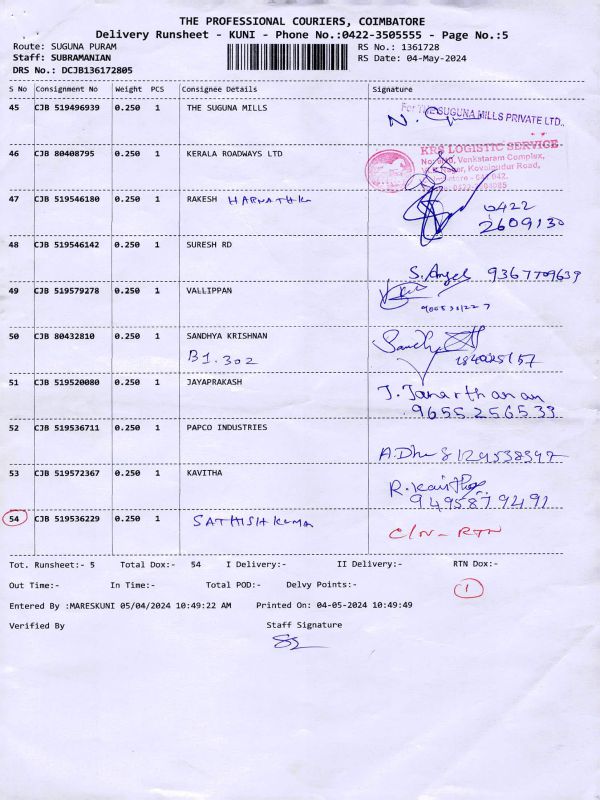 THE PROFESSIONAL COURIERS, COIMBATORE
Delivery Runsheet - KUNI - Phone No.:0422-3505555 - Page No.:5
Route: SUGUNA PURAM
RS No.: 1361728
Staff: SUBRAMANIAN
RS Date: 04-May-2024
DRS No.: DCJB136172805
S No Consignment No Weight PCS Consignee Details Signature
45 CJB 519496939 0.250 1 THE SUGUNA MILLS
For THE SUGUNA MILLS PRIVATE LTD.,
46 CJB 80408795 0.250 1 KERALA ROADWAYS LTD
KRS LOGISTIC SERVICE
Venkataram Complex,
Nagar, Kovaipudur Road,
47 CJB 519546180 0.250 1 RAKESH HARNATH K
0422
2609130
48 CJB 519546142 0.250 1 SURESH RD
S. Angel 9367709639
49 CJB 519579278 0.250 1 VALLIPPAN
50 CJB 80432810 0.250 1 SANDHYA KRISHNAN
B1.302
51 CJB 519520080 0.250 1 JAYAPRAKASH J. Janarthanan
9655256533
52 CJB 519536711 0.250 1 PAPCO INDUSTRIES
53 CJB 519572367 0.250 1 KAVITHA R. Kavitha
9495879491
54 CJB 519536229 0.250 1 SATHISH KUMA C/N- RTN
Tot. Runsheet:- 5 Total Dox:- 54 I Delivery:- II Delivery:- RTN Dox:-
Out Time:- In Time:- Total POD:- Delvy Points:- 1
Entered By :MARESKUNI 05/04/2024 10:49:22 AM Printed On: 04-05-2024 10:49:49
Verified By Staff Signature